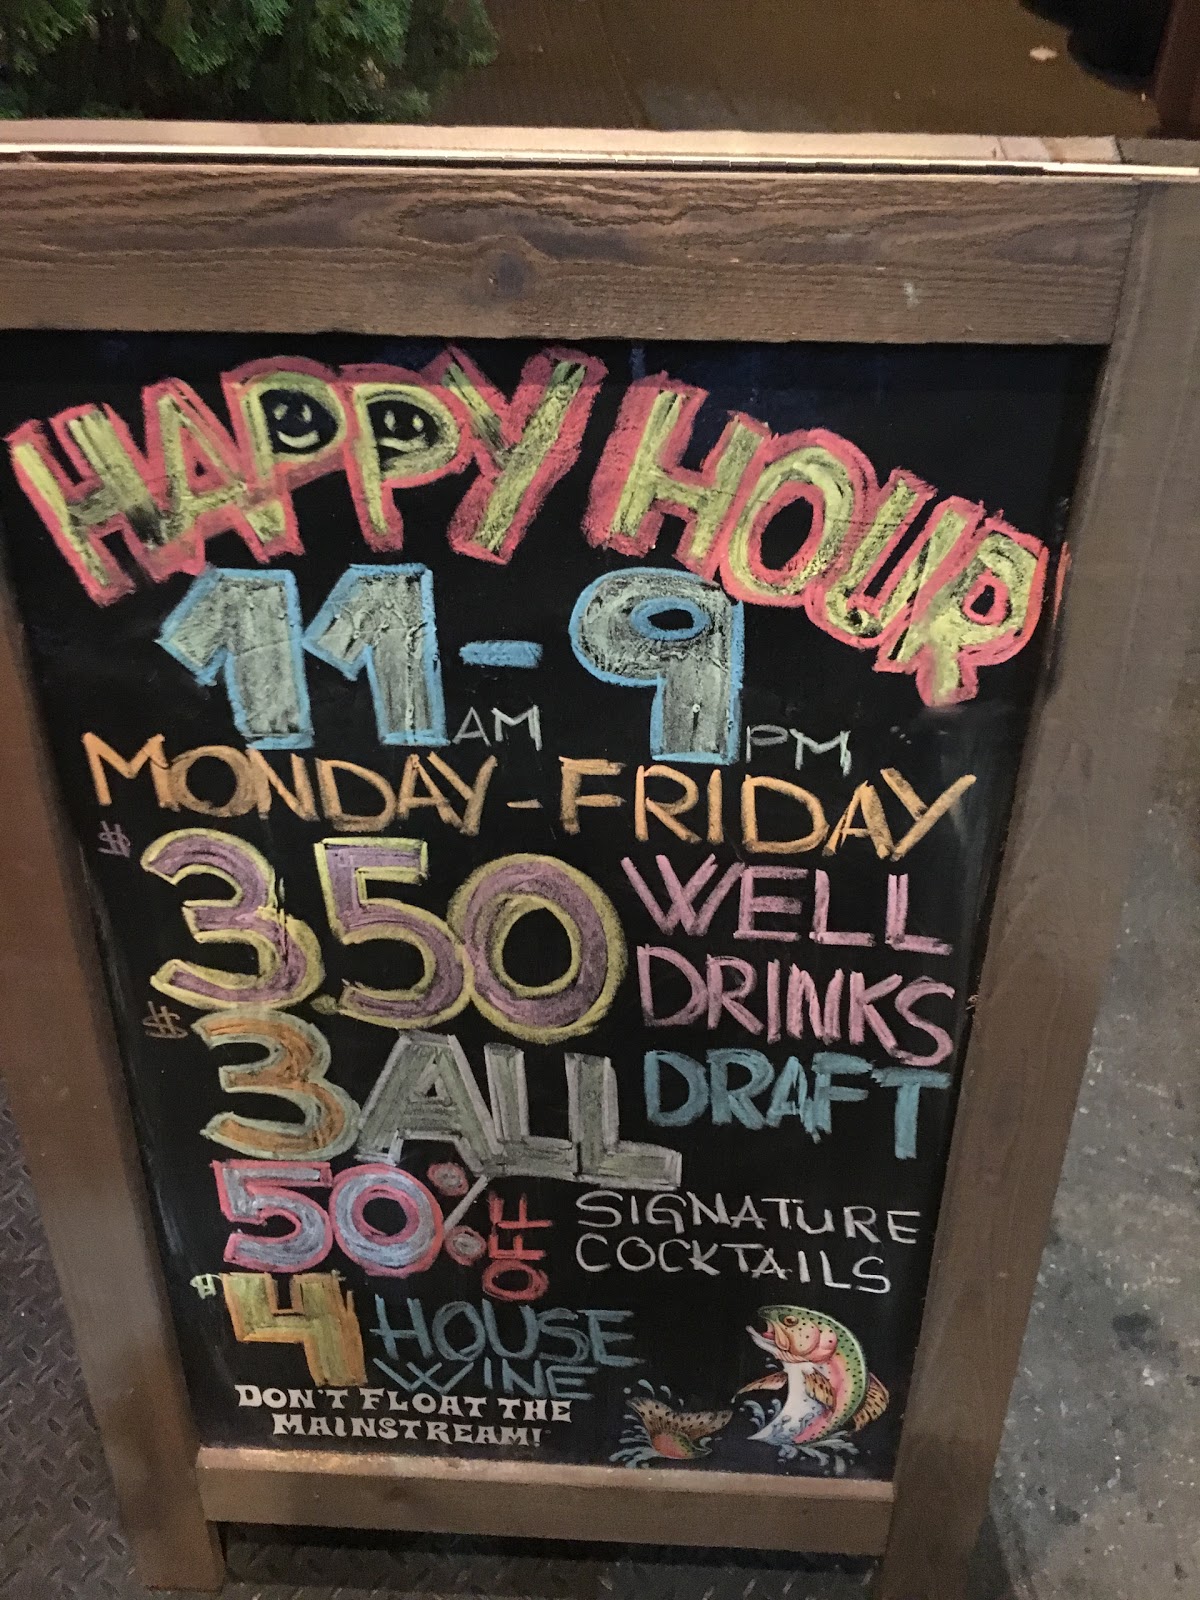 HAPPY HOUR
11AM - 9PM
MONDAY - FRIDAY
$3.50 WELL DRINKS
$3 ALL DRAFT
50% OFF SIGNATURE COCKTAILS
$4 HOUSE WINE
DON'T FLOAT THE
MAINSTREAM!